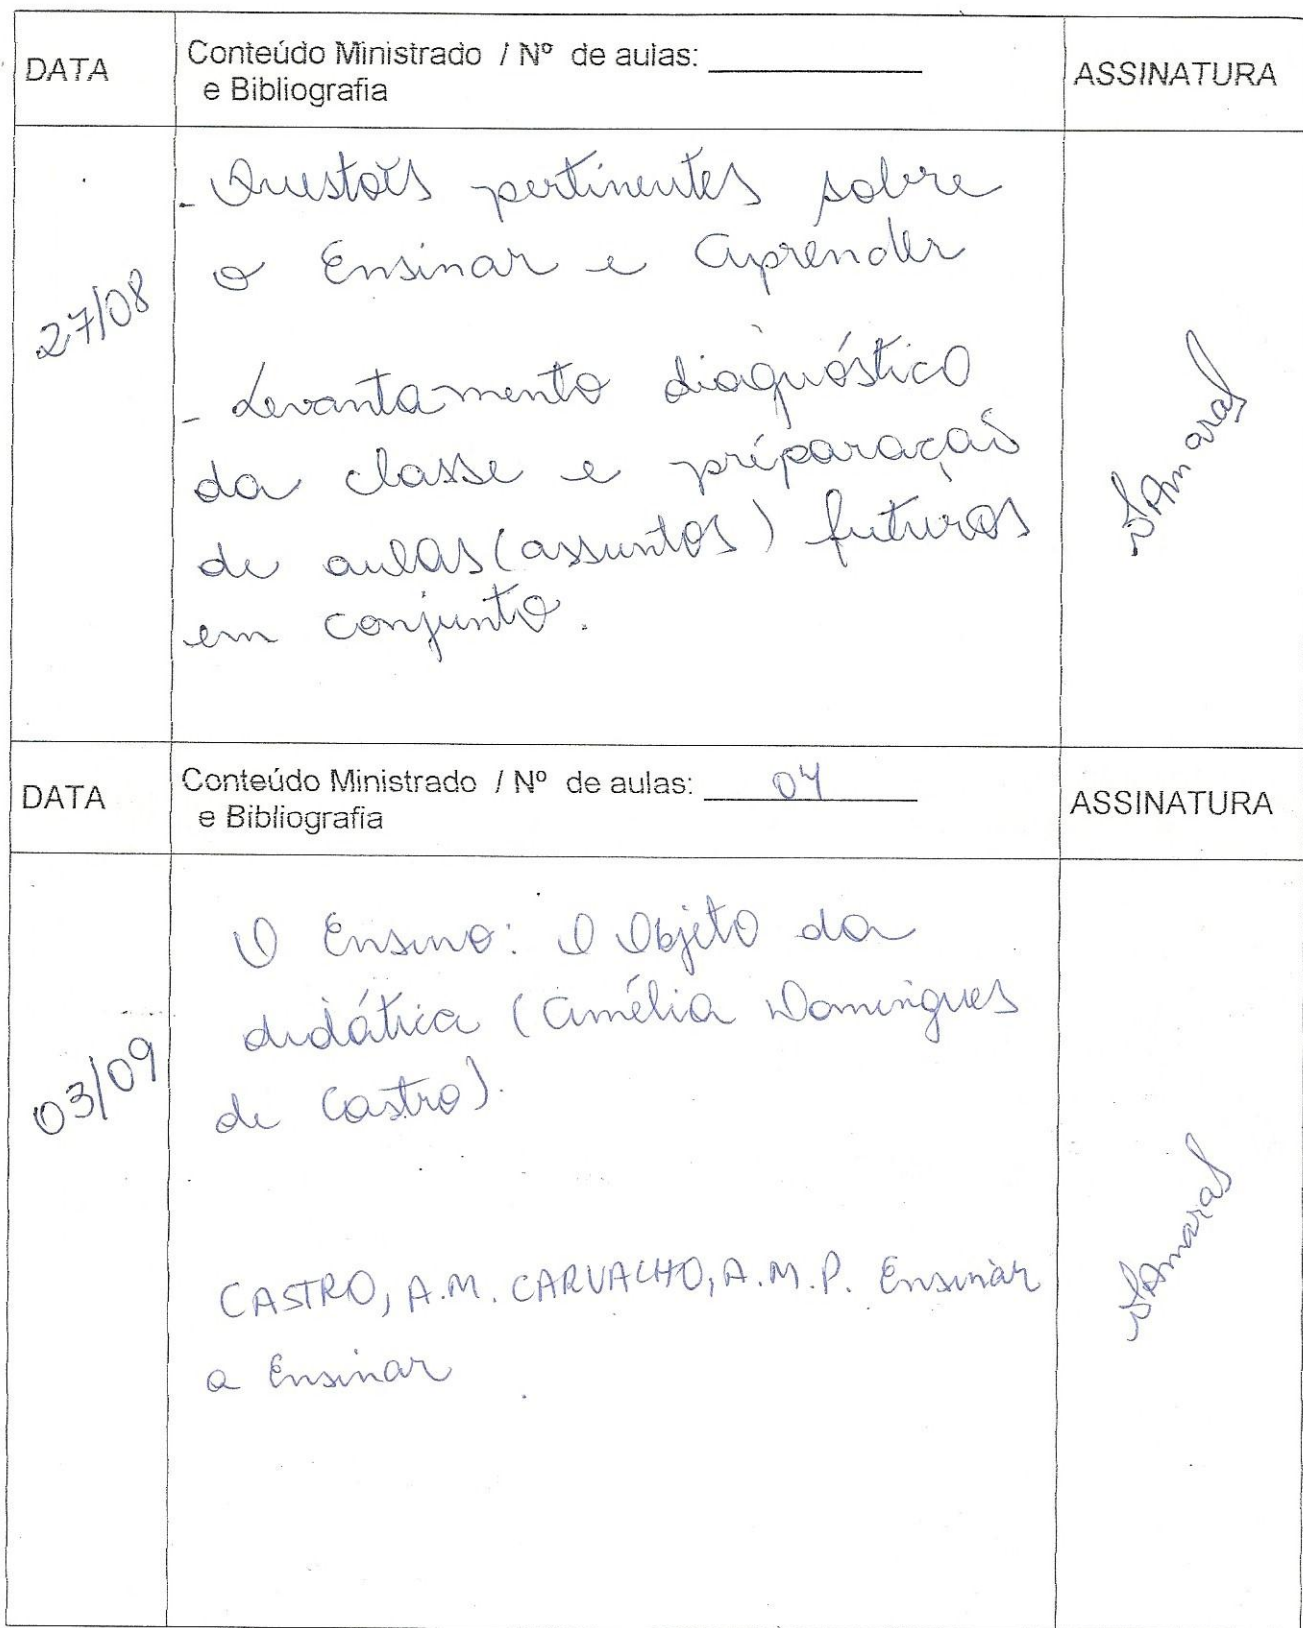 DATA
Conteúdo Ministrado / Nº de aulas:
e Bibliografia
ASSINATURA
27/08
- Questões pertinentes sobre
o Ensinar e Aprender
- Levantamento diagnóstico
da classe e preparação
de aulas (assuntos) futuros
em conjunto.
SAmaral
DATA
Conteúdo Ministrado / Nº de aulas: 04
e Bibliografia
ASSINATURA
03/09
O Ensino: O Objeto da
didática (Amélia Domingues
de Castro).
CASTRO, A.M. CARVALHO, A.M.P. Ensinar
a Ensinar
SAmaral